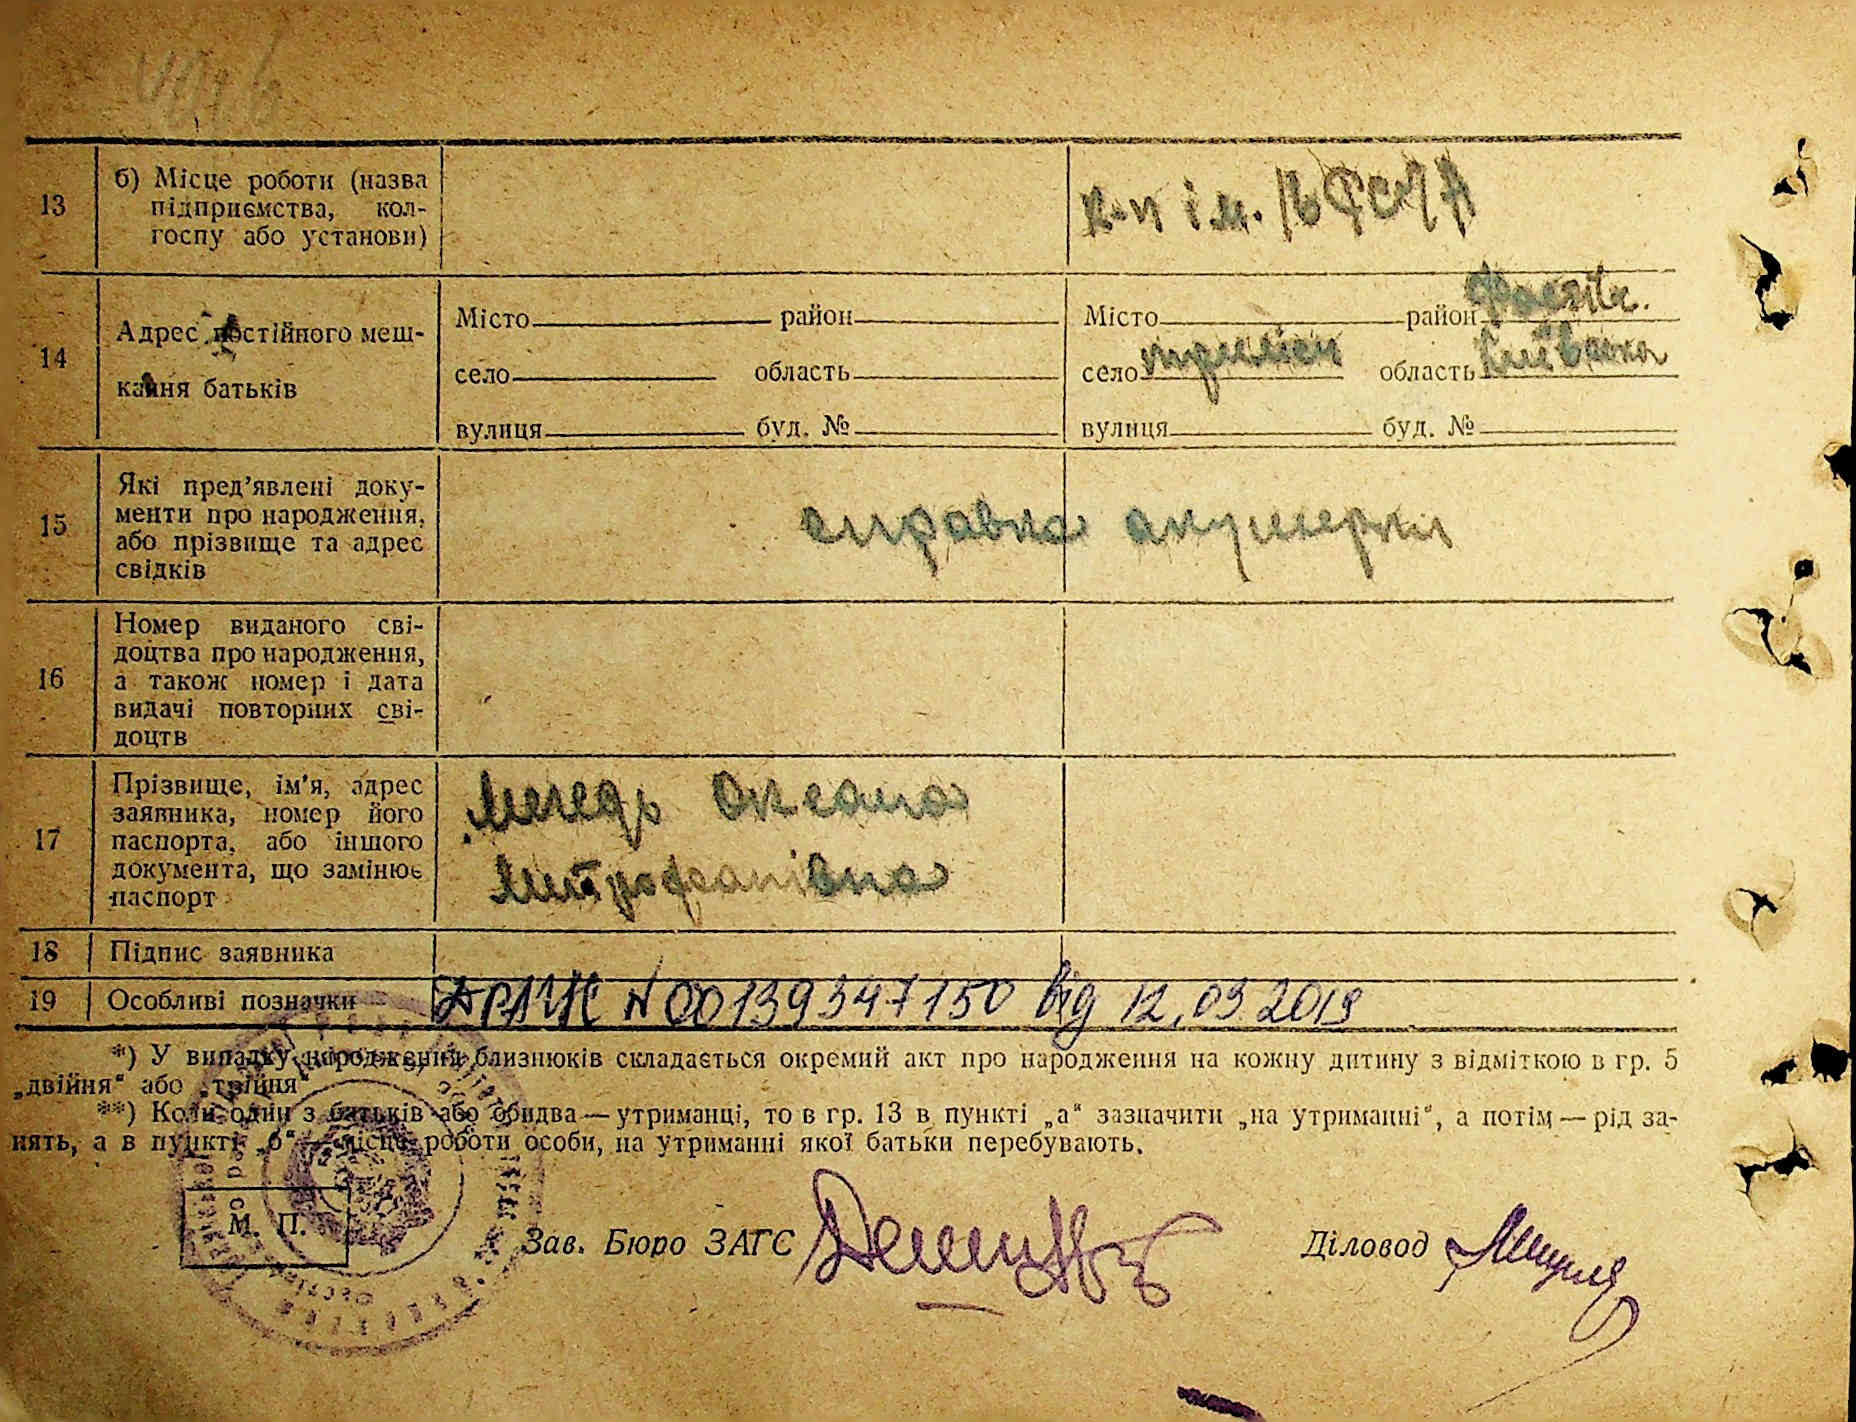 13
б) Місце роботи (назва
підприємства, кол-
госпу або установи)
к-п ім.
14
Адрес постійного меш-
кання батьків
Місто район
село область
вулиця буд. №
Місто район Фастів.
село область Київська
вулиця буд. №
15
Які пред'явлені доку-
менти про народження,
або прізвище та адрес
свідків
справка акушерки
16
Номер виданого сві-
доцтва про народження,
а також номер і дата
видачі повторних сві-
доцтв
17
Прізвище, ім'я, адрес
заявника, номер його
паспорта, або іншого
документа, що замінює
паспорт
Оксана
Митрофанівна
18 Підпис заявника
19 Особливі позначки
N 00139347150 від 12.03 2019
*) У випадку народження близнюків складається окремий акт про народження на кожну дитину з відміткою в гр. 5
„двійня“ або „трійня“
**) Коли один з батьків або обидва — утриманці, то в гр. 13 в пункті „а“ зазначити „на утриманні“, а потім — рід за-
нять, а в пункті „б“ — місце роботи особи, на утриманні якої батьки перебувають.
М. П.
Зав. Бюро ЗАГС
Діловод